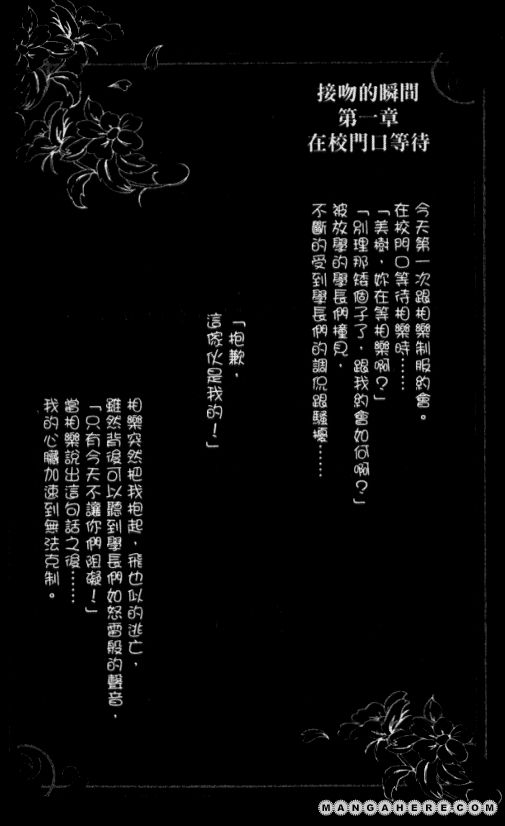 接吻的瞬間
第一章
在校門口等待
今天第一次跟相樂制服約會。
在校門口等待相樂時……
「美樹，妳在等相樂啊？」
「別理那矮個子了，跟我約會如何啊？」
被放學的學長們撞見，
不斷的受到學長們的調侃跟騷擾……
「抱歉，
這傢伙是我的！」
相樂突然把我抱起，飛也似的逃亡，
雖然背後可以聽到學長們如怒雷般的聲音，
「只有今天不讓你們阻礙！」
當相樂說出這句話之後……
我的心臟加速到無法克制。
MANGAHERE.COM